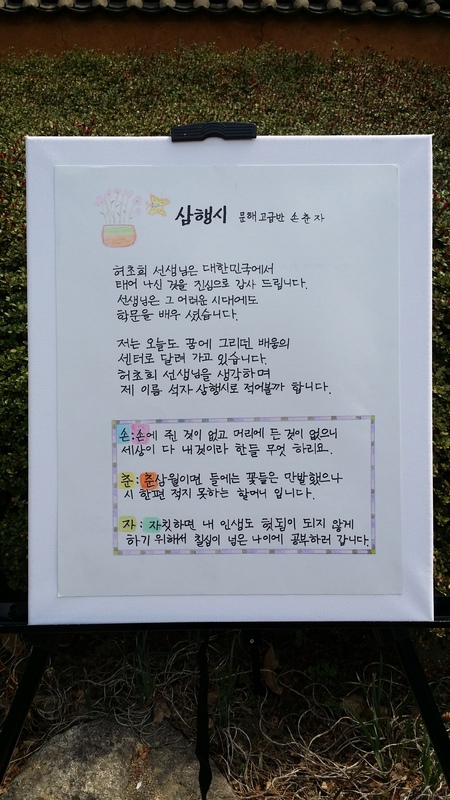 삼행시 문해 고급반 손춘자
허초희 선생님은 대한민국에서
태어 나신 것을 진심으로 감사 드립니다.
선생님은 그 어려운 시대에도
학문을 배우 셨습니다.
저는 오늘도 꿈에 그리던 배움의
센터로 달려 가고 있습니다.
허초희 선생님을 생각하며
제 이름 석자 삼행시로 적어볼까 합니다.
손:손에 쥔 것이 없고 머리에 든 것이 없으니
세상이 다 내것이라 한들 무엇 하리요.
춘:춘삼월이면 들에는 꽃들은 만발했으나
시 한편 적지 못하는 할머니 입니다.
자:자칫하면 내 인생도 헛됨이 되지 않게
하기 위해서 칠십이 넘은 나이에 공부하러 갑니다.